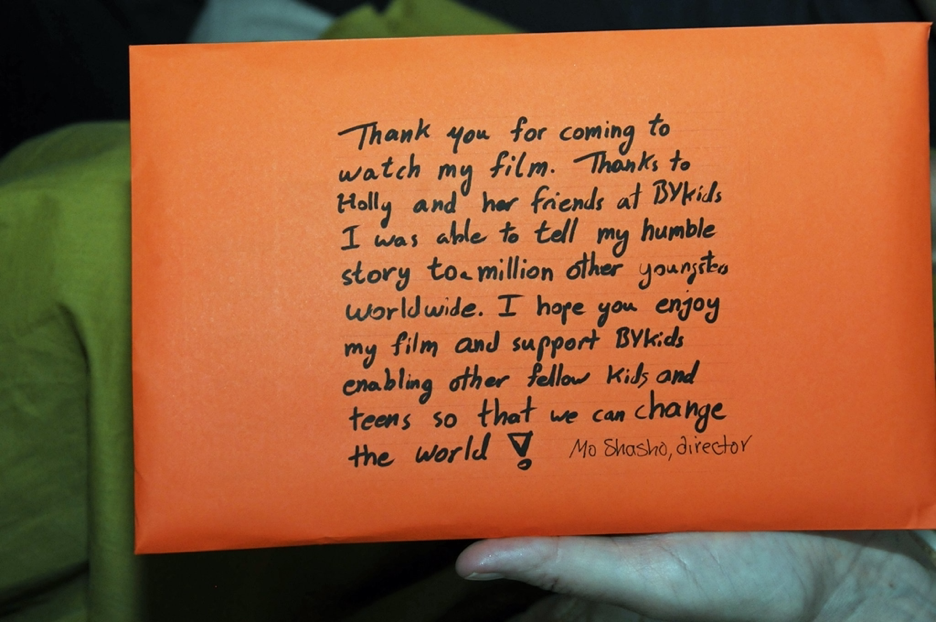 Thank you for coming to
watch my film. Thanks to
Holly and her friends at BYkids
I was able to tell my humble
story to a million other youngsters
worldwide. I hope you enjoy
my film and support BYkids
enabling other fellow kids and
teens so that we can change
the world!
Mo Shasho, director